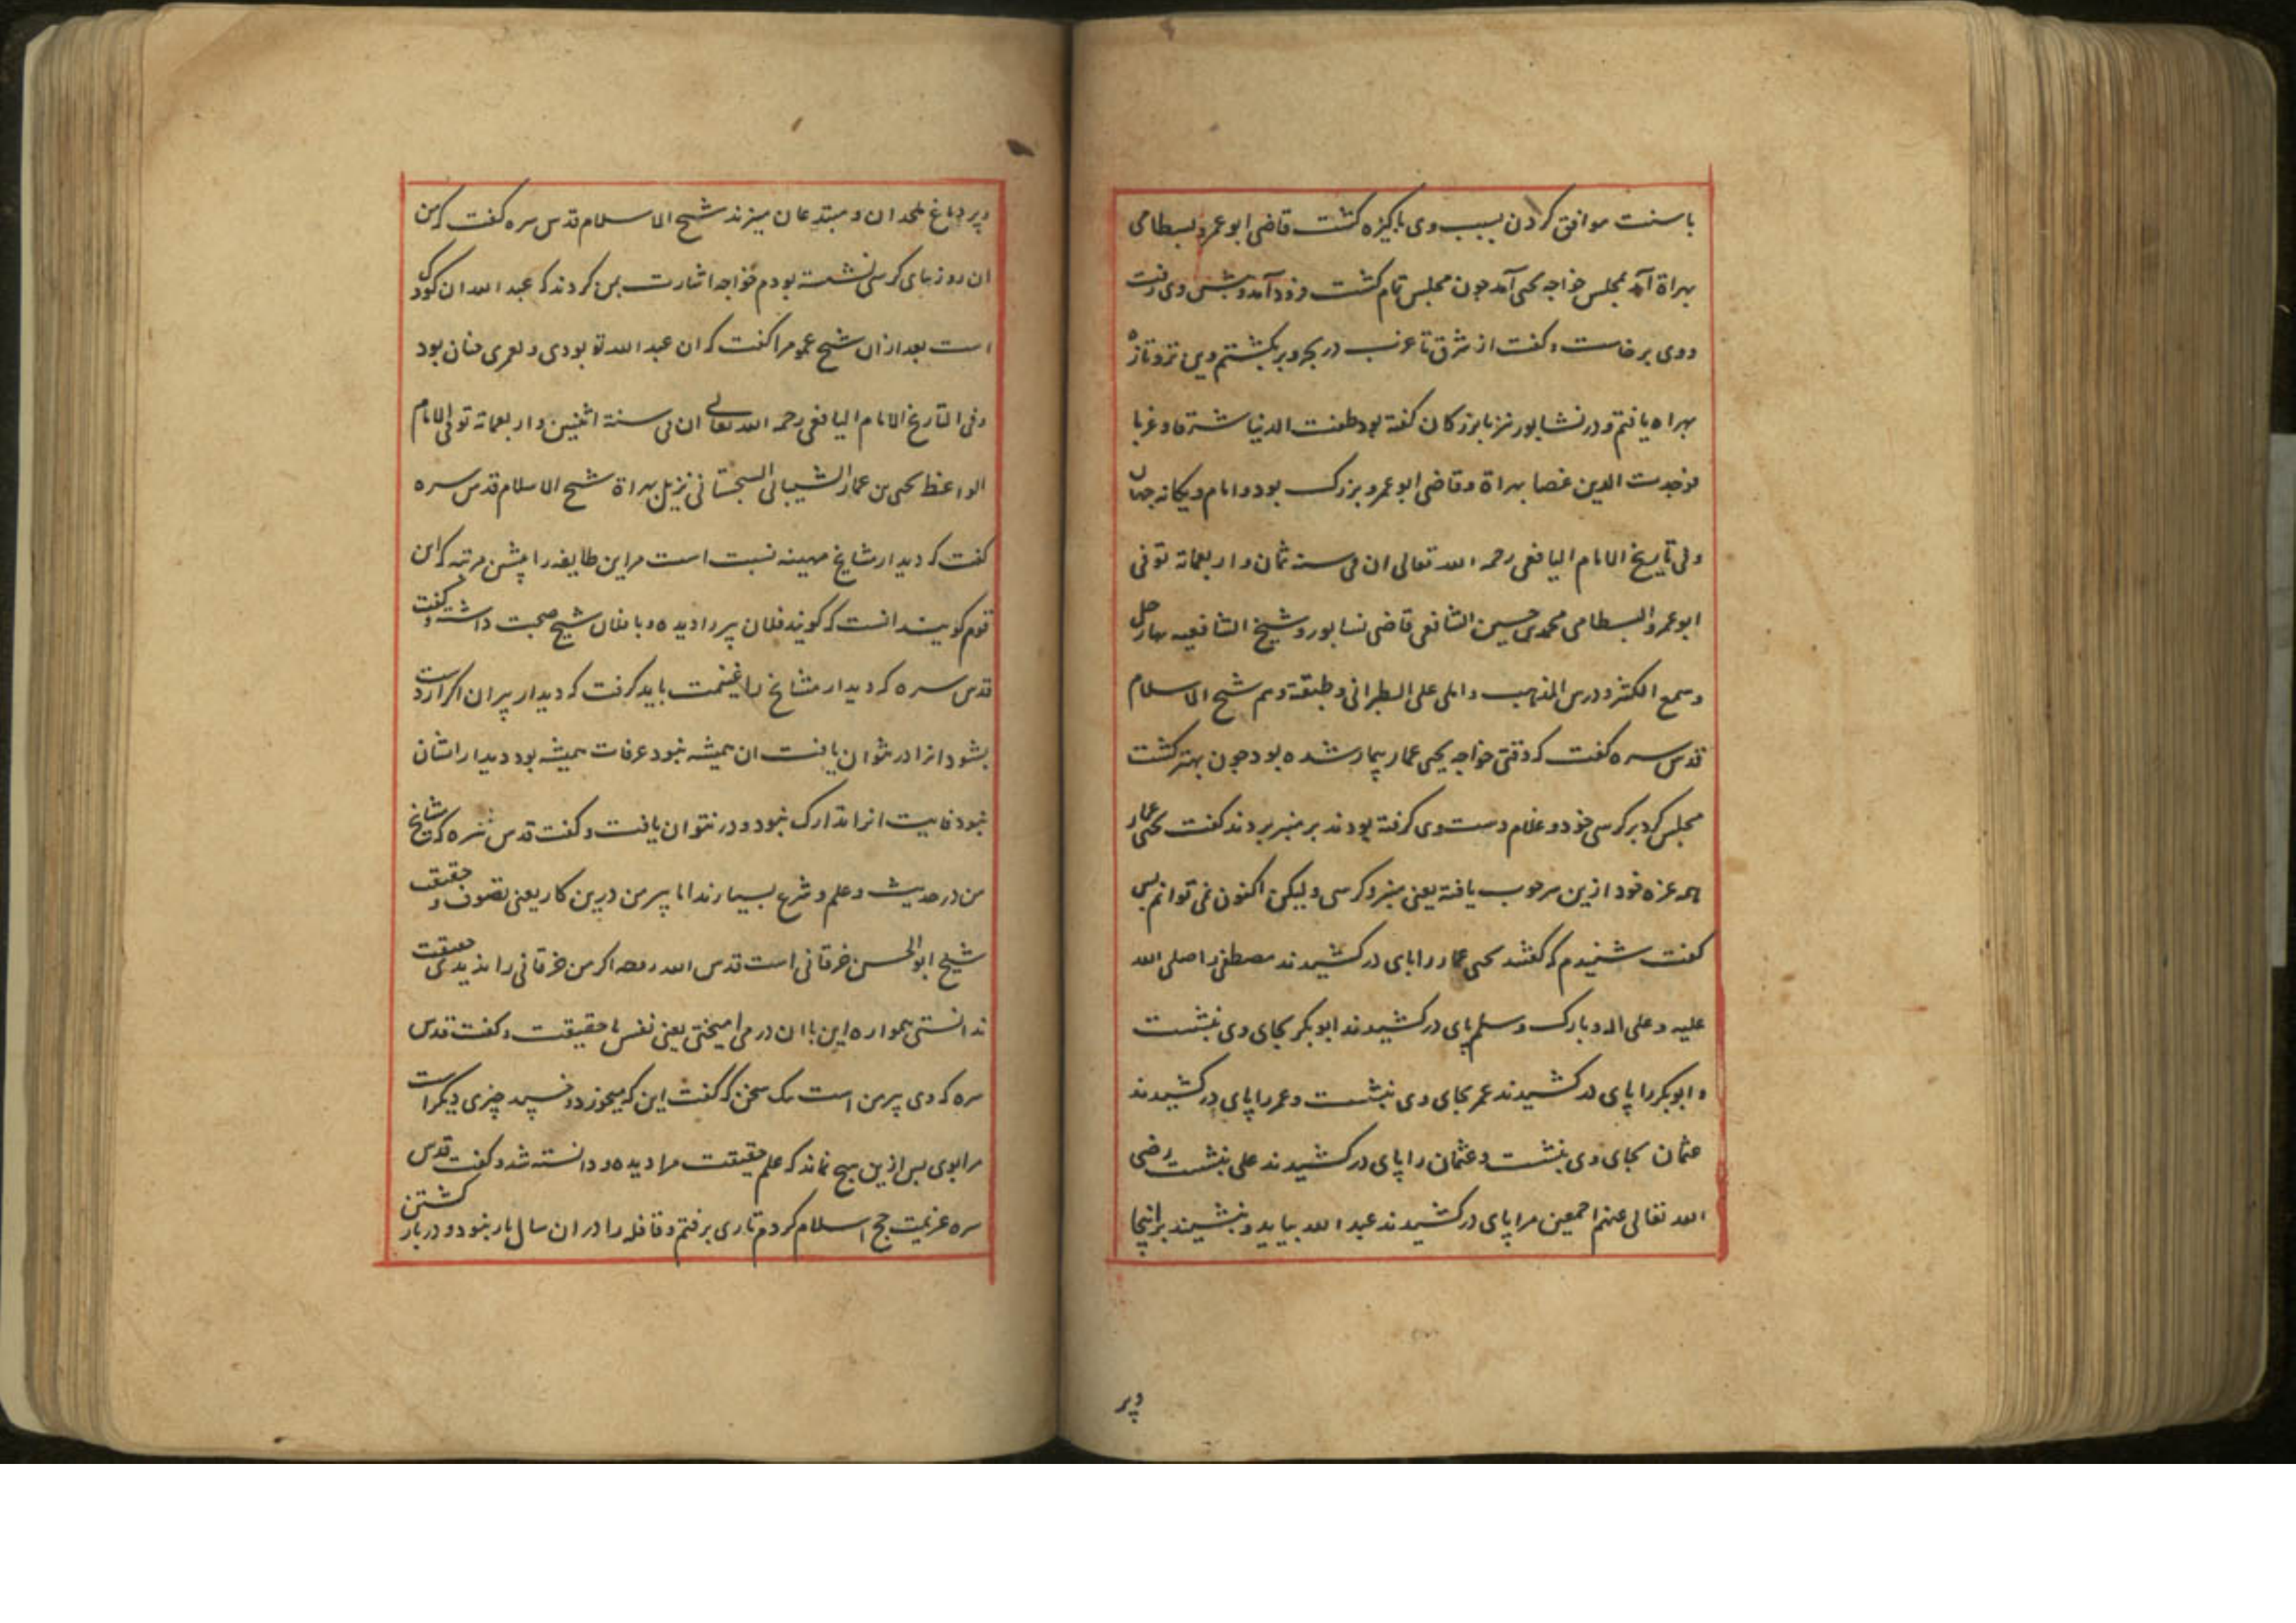 با سنت موافق کردن بسبب وی پاکیزه کشت قاضی ابو عمرو بسطامی
بهراة آمد بمجلس خواجه یحیی آمد چون مجلس تمام کشت فرود آمد و پیش وی رفت
و وی برخاست و کفت از شرق تا غرب در بحر و بر بکشتم دین تر و تازه
بهراه یافتم و در نشابور نیز با بزرکان کفته بود طفت الدنیا شرقا و غربا
فوجدت الدین غضا بهراة و قاضی ابو عمرو بزرک بود و امام و یکانه جهان
و فی تاریخ الامام الیافعی رحمه الله تعالی ان فی سنه ثمان و اربعمائة توفی
ابو عمرو البسطامی محمد بن حسین الشافعی قاضی نسابور و شیخ الشافعیه بها رحل
و سمع الکثیر و درس المذهب و املی علی الطبرانی و طبقته و هم شیخ الاسلام
قدس سره کفت که وقتی خواجه یحیی عمار بیمار شده بود چون بهتر کشت
مجلس کرد بر کرسی خود دو غلام دست وی کرفته بودند بر منبر بردند کفت یحیی عمار
همه عزه خود ازین سر چوب یافته یعنی منبر و کرسی و لیکن اکنون نمی توانم پس
کفت شنیدم که کفتند یحیی عمار را پای در کشیدند مصطفی را صلی الله
علیه و علی اله و بارک و سلم پای در کشیدند ابو بکر بجای وی بنشست
و ابو بکر را پای در کشیدند عمر بجای وی بنشست و عمر را پای در کشیدند
عثمان بجای وی بنشست و عثمان را پای در کشیدند علی بنشست رضی
الله تعالی عنهم اجمعین مرا پای در کشیدند عبد الله بیاید و بنشیند بر اینجا
و بر
و بر دماغ ملحدان و مبتدعان میزند شیخ الاسلام قدس سره کفت که من
ان روز بپای کرسی نشسته بودم خواجه اشارت بمن کردند که عبد الله ان کودک
است بعد ازان شیخ عمو مرا کفت که ان عبد الله تو بودی و لعمری چنان بود
و فی التاریخ الامام الیافعی رحمه الله تعالی ان فی سنة اثنین و اربعمائة توفی الامام
الواعظ یحیی بن عمار الشیبانی السجستانی نزیل بهراة شیخ الاسلام قدس سره
کفت که دیدار مشایخ مهینه نسبت است مر این طایفه را پیشین مرتبه که این
قوم کویند انست که کویند فلان پیر را دیده و با فلان شیخ صحبت داشته و کفت
قدس سره که دیدار مشایخ را غنیمت باید کرفت که دیدار پیران اکر از دست
بشود انرا در نتوان یافت ان همیشه نبود عرفات همیشه بود دیدار انشان
نبود فایت انرا تدارک نبود و در نتوان یافت و کفت قدس سره که مشایخ
من در حدیث و علم و شرع بسیارند اما پیر من درین کار یعنی تصوف و حقیقت
شیخ ابو الحسن خرقانی است قدس الله روحه اکر من خرقانی را ندیدی حقیقت
ندانستی همواره این با ان در می امیختی یعنی نفس با حقیقت و کفت قدس
سره که وی پیر من است بیک سخن که کفت این که میخورد و خسپد چیزی دیکر است
مرا بوی پس ازین هیچ نماند که علم حقیقت مرا دیده و دانسته شد و کفت قدس
سره عزیمت حج اسلام کردم تا ری برفتم و قافله را در ان سال بار نبود و در باز کشتن